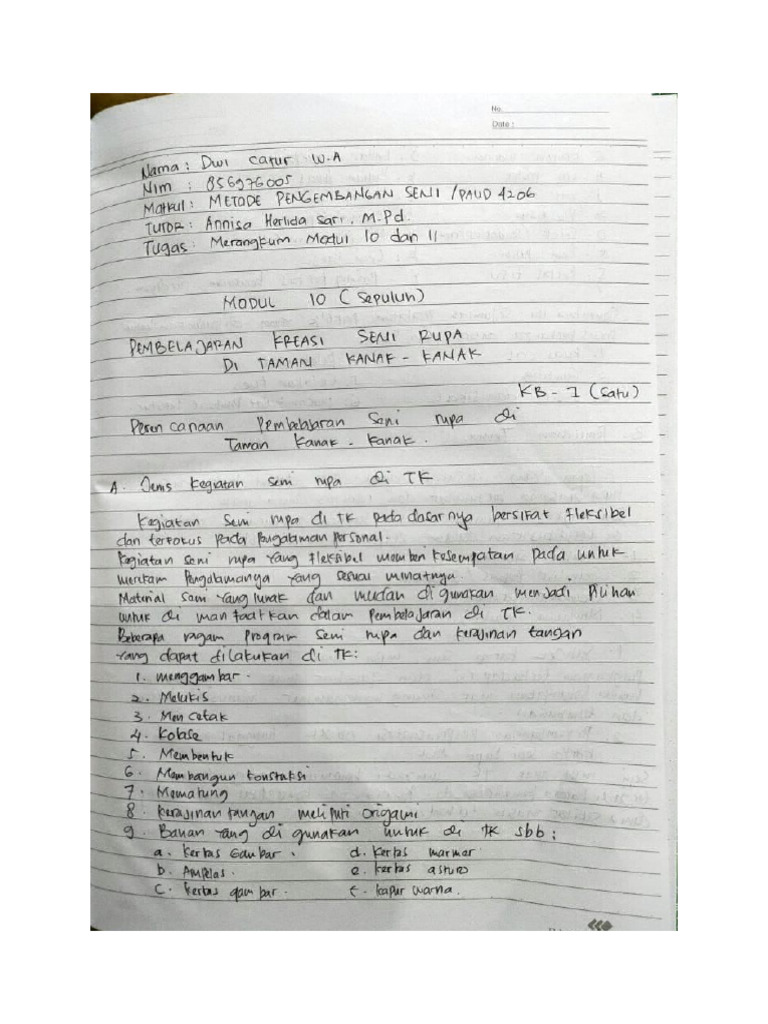 No.
Date :
Nama : Dwi Catur W.A
Nim : 856976005
Matkul : METODE PENGEMBANGAN SENI / PAUD 4206
TUTOR : Annisa Herlida Sari, M.Pd.
Tugas : Merangkum Modul 10 dan 11
MODUL 10 ( Sepuluh )
PEMBELAJARAN KREASI SENI RUPA
DI TAMAN KANAK - KANAK
KB - 1 (Satu)
Perencanaan Pembelajaran Seni rupa di
Taman Kanak - Kanak .
A. Jenis kegiatan seni rupa di TK
Kegiatan Seni rupa di TK pada dasarnya bersifat Fleksibel
dan terfokus pada pengalaman personal.
Kegiatan seni rupa yang fleksibel memberi kesempatan pada untuk
merekam Pengalamanya yang sesuai minatnya.
Material seni yang lunak dan mudah digunakan, menjadi pilihan
untuk di manfaatkan dalam pembelajaran di TK.
Beberapa ragam program seni rupa dan kerajinan tangan
yang dapat dilakukan di TK:
1. menggambar.
2. Melukis
3. Mencetak
4. Kolase
5. Membentuk
6. Membangun konstruksi
7. Mematung
8. kerajinan tangan meliputi origami
9. Bahan yang di gunakan untuk di TK sbb :
a. kertas Gambar . d. kertas marmar
b. Ampelas . e. kertas asturo
c. kertas gambar . f. kapur warna .